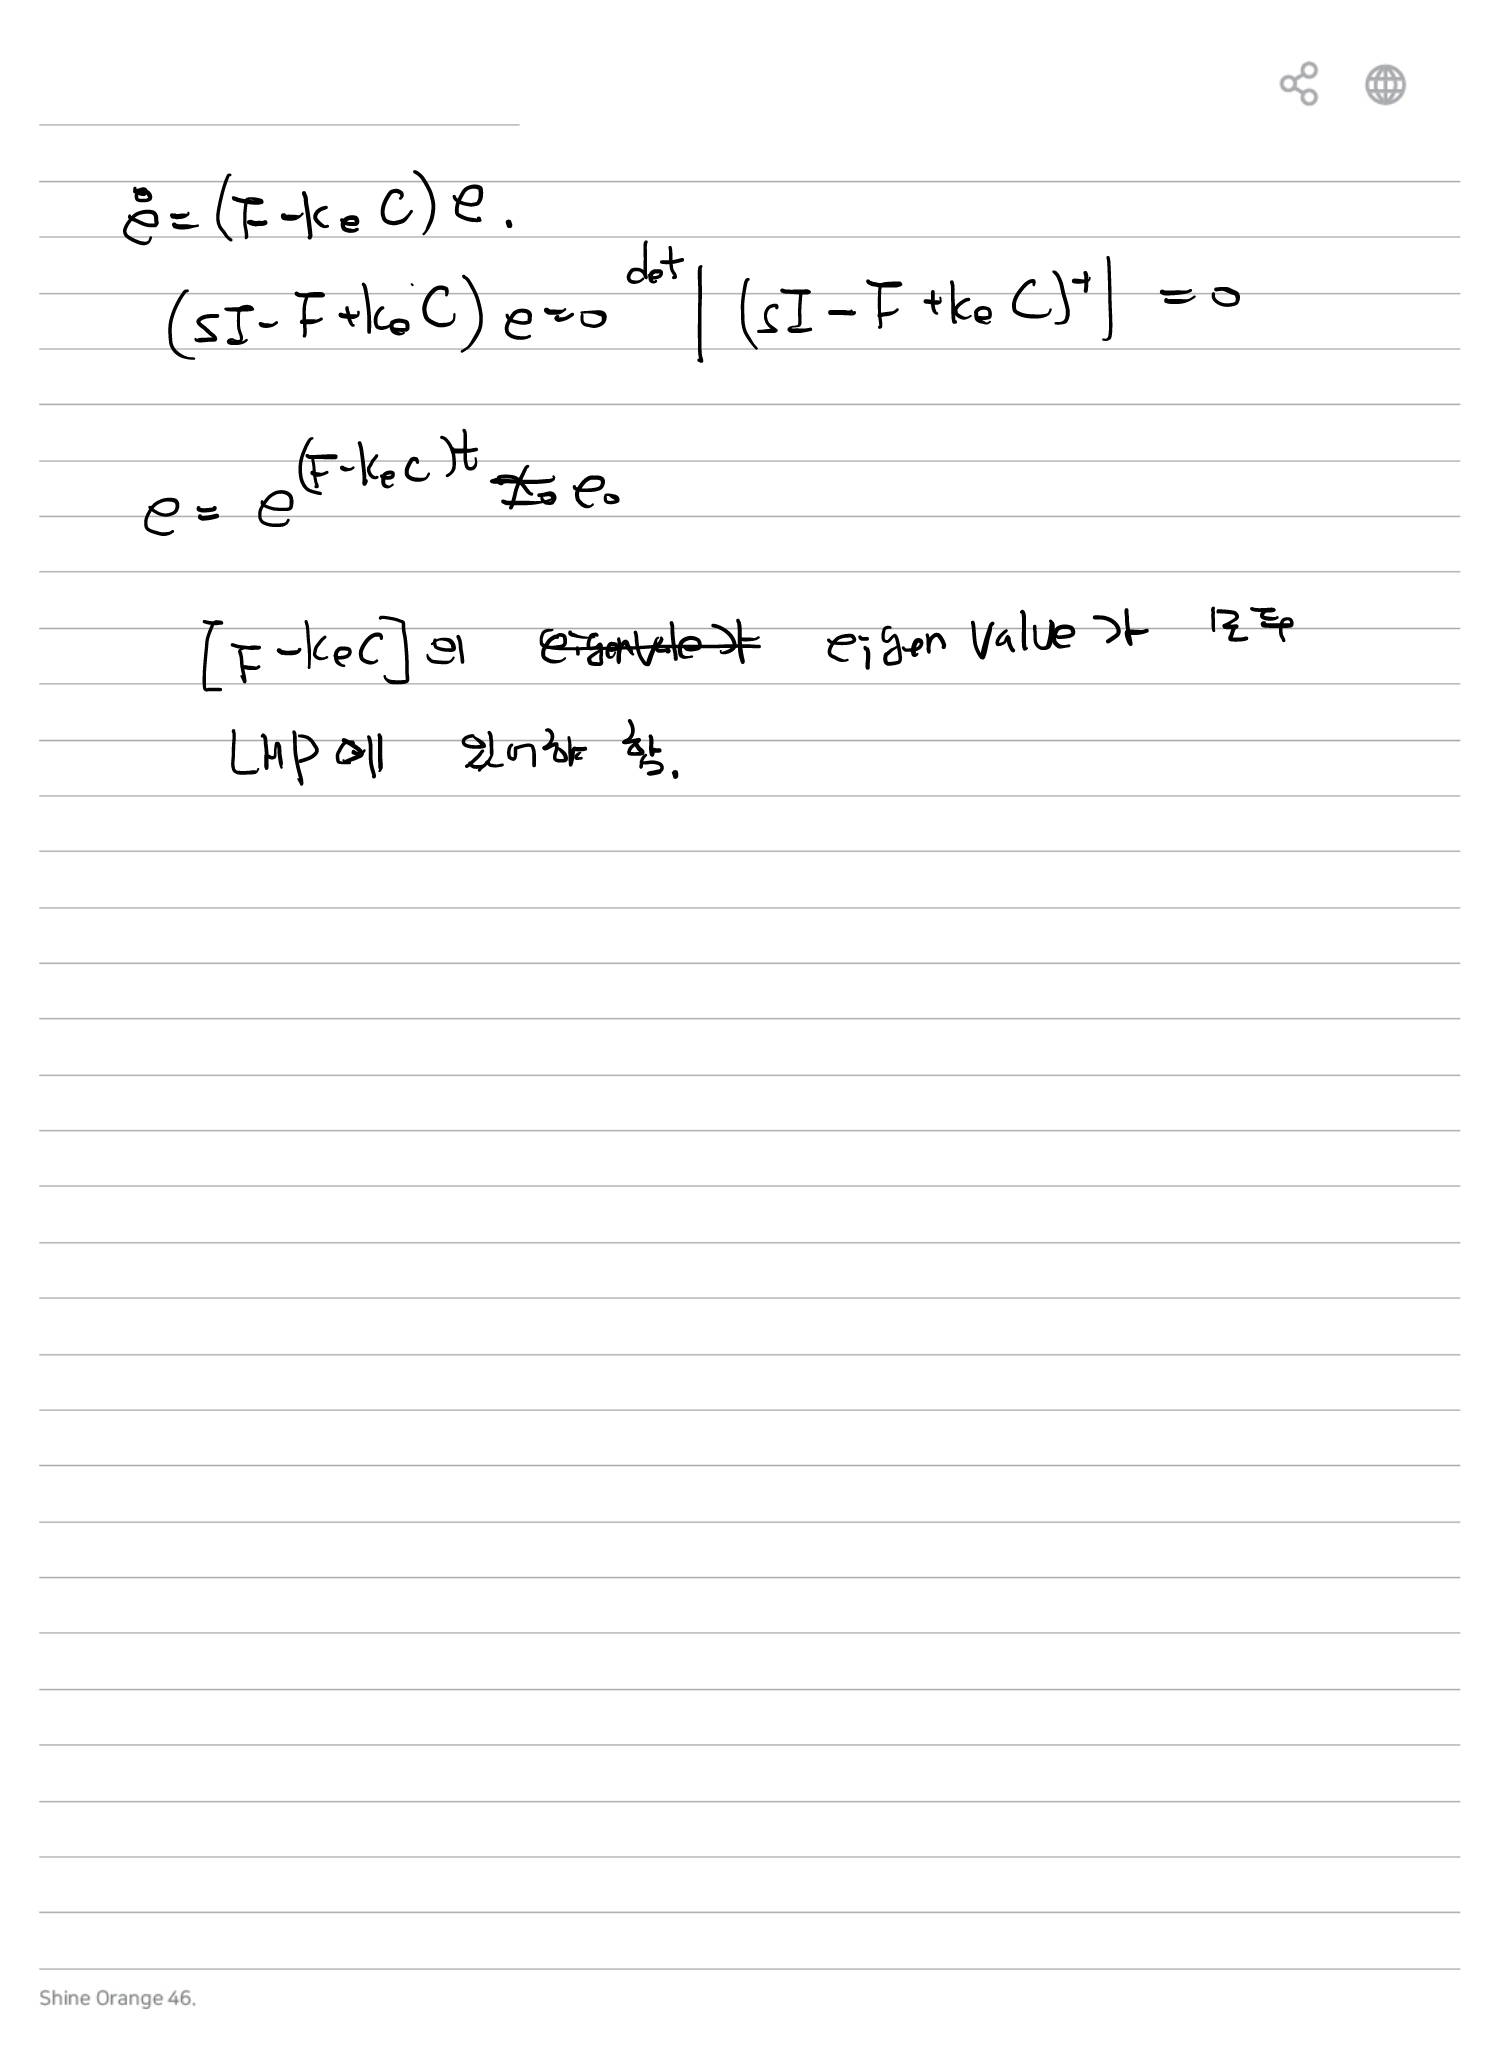 ė = (F - ke C) e.
(sI - F + ke C) e = 0 det | (sI - F + ke C)⁺ | = 0
e = e^(F - ke C)t x₀ e₀
[F - ke C] 의 eigenvale가 eigen value가 모두
LHP에 있어야 함.
Shine Orange 46.